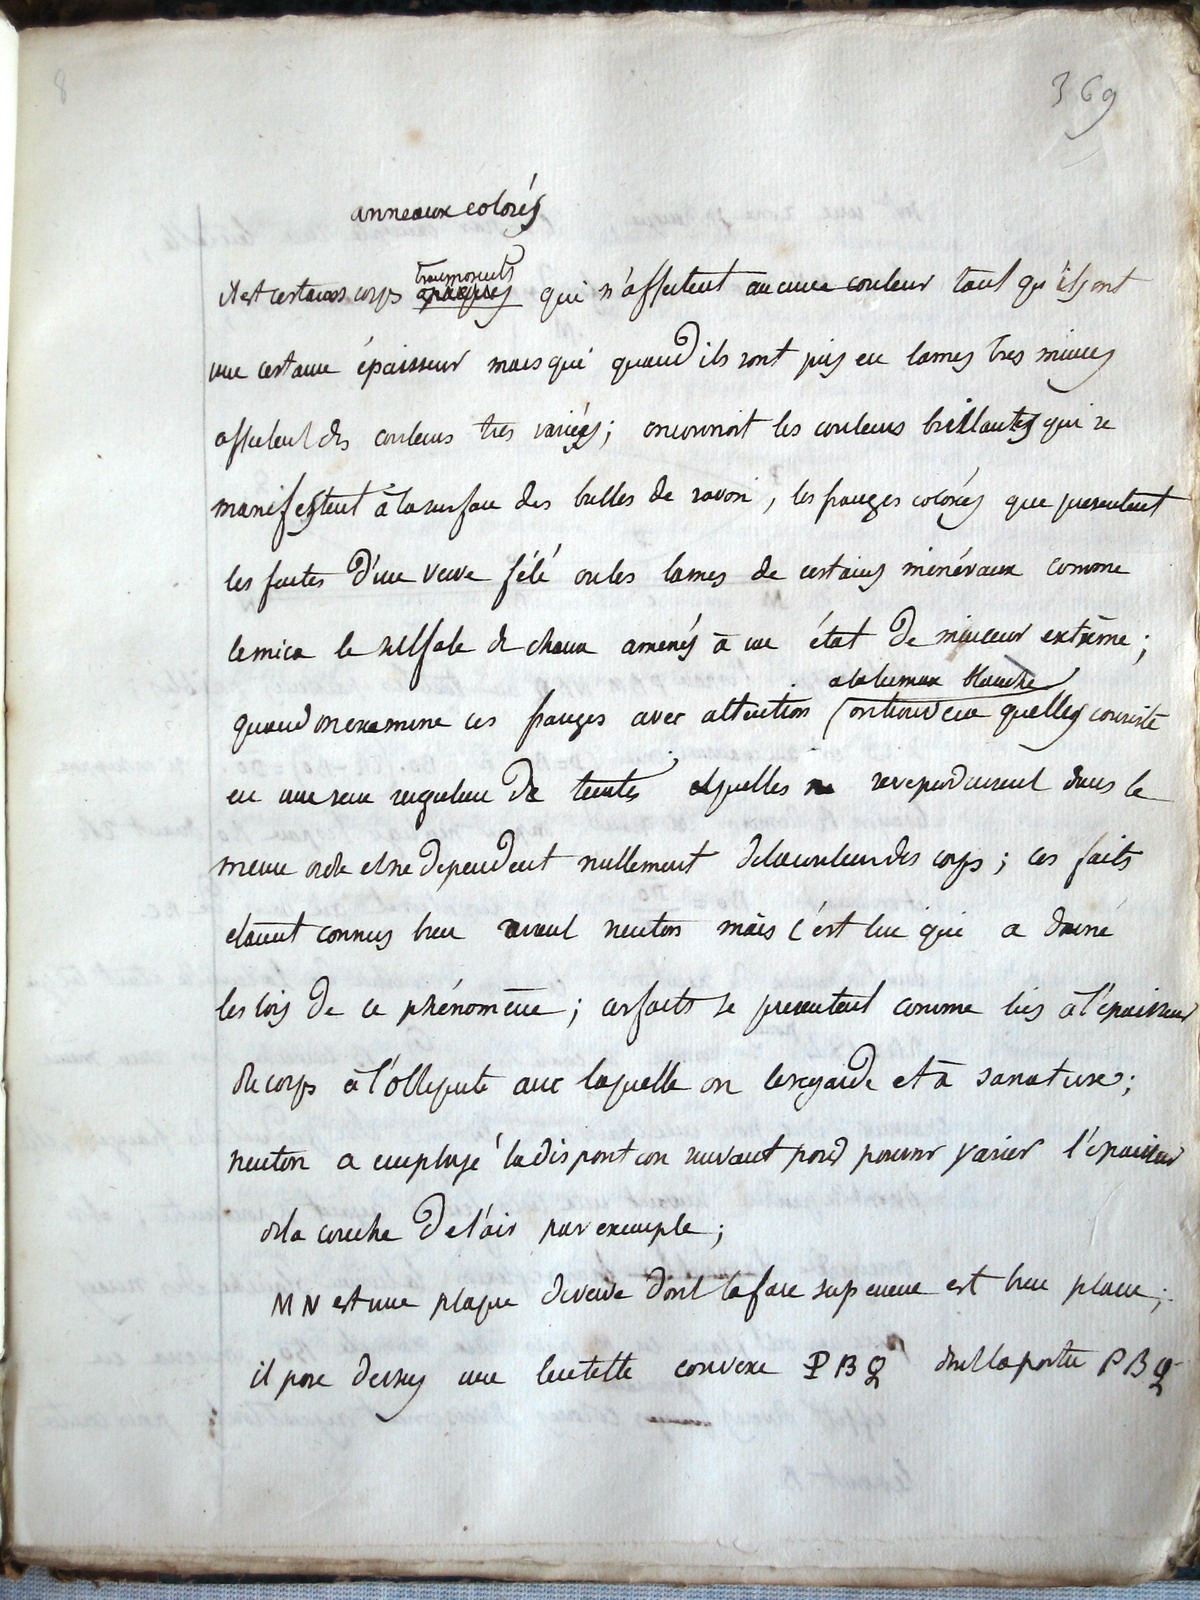 8
369
anneaux colorés
il est certains corps transparents opaques qui n'affectent aucune couleur tant qu'ils ont
une certaine épaisseur mais qui quand ils sont pris en lames tres minces
affectent des couleurs tres variées; on connoit les couleurs brillantes qui se
manifestent à la surface des bulles de savon, les franges colorées que presentent
les fentes d'une verre félé ou les lames de certains minéraux comme
le mica le sulfate de chaux amenés à un état de minceur extrême;
a la lumiere blanche
quand on examine ces franges avec attention (on trouve que quelles consiste
en une serie reguliere de teintes et quelles se reproduisent dans le
meme ordre et ne dependent nullement de la couleur des corps; ces faits
etaient connus bien avant neuton mais c'est lui qui a donné
les lois de ce phénomène; ces faits se presentent comme liés à l'épaisseur
du corps à l'obliquité avec laquelle on le regarde et à sa nature;
neuton a employé la disposition suivante pour pouvoir varier l'épaisseur
de la couche de l'air par exemple;
MN est une plaque de verre dont la face superieure est bien plane;
il pose dessus une lentille convexe PBQ dont la partie PBQ